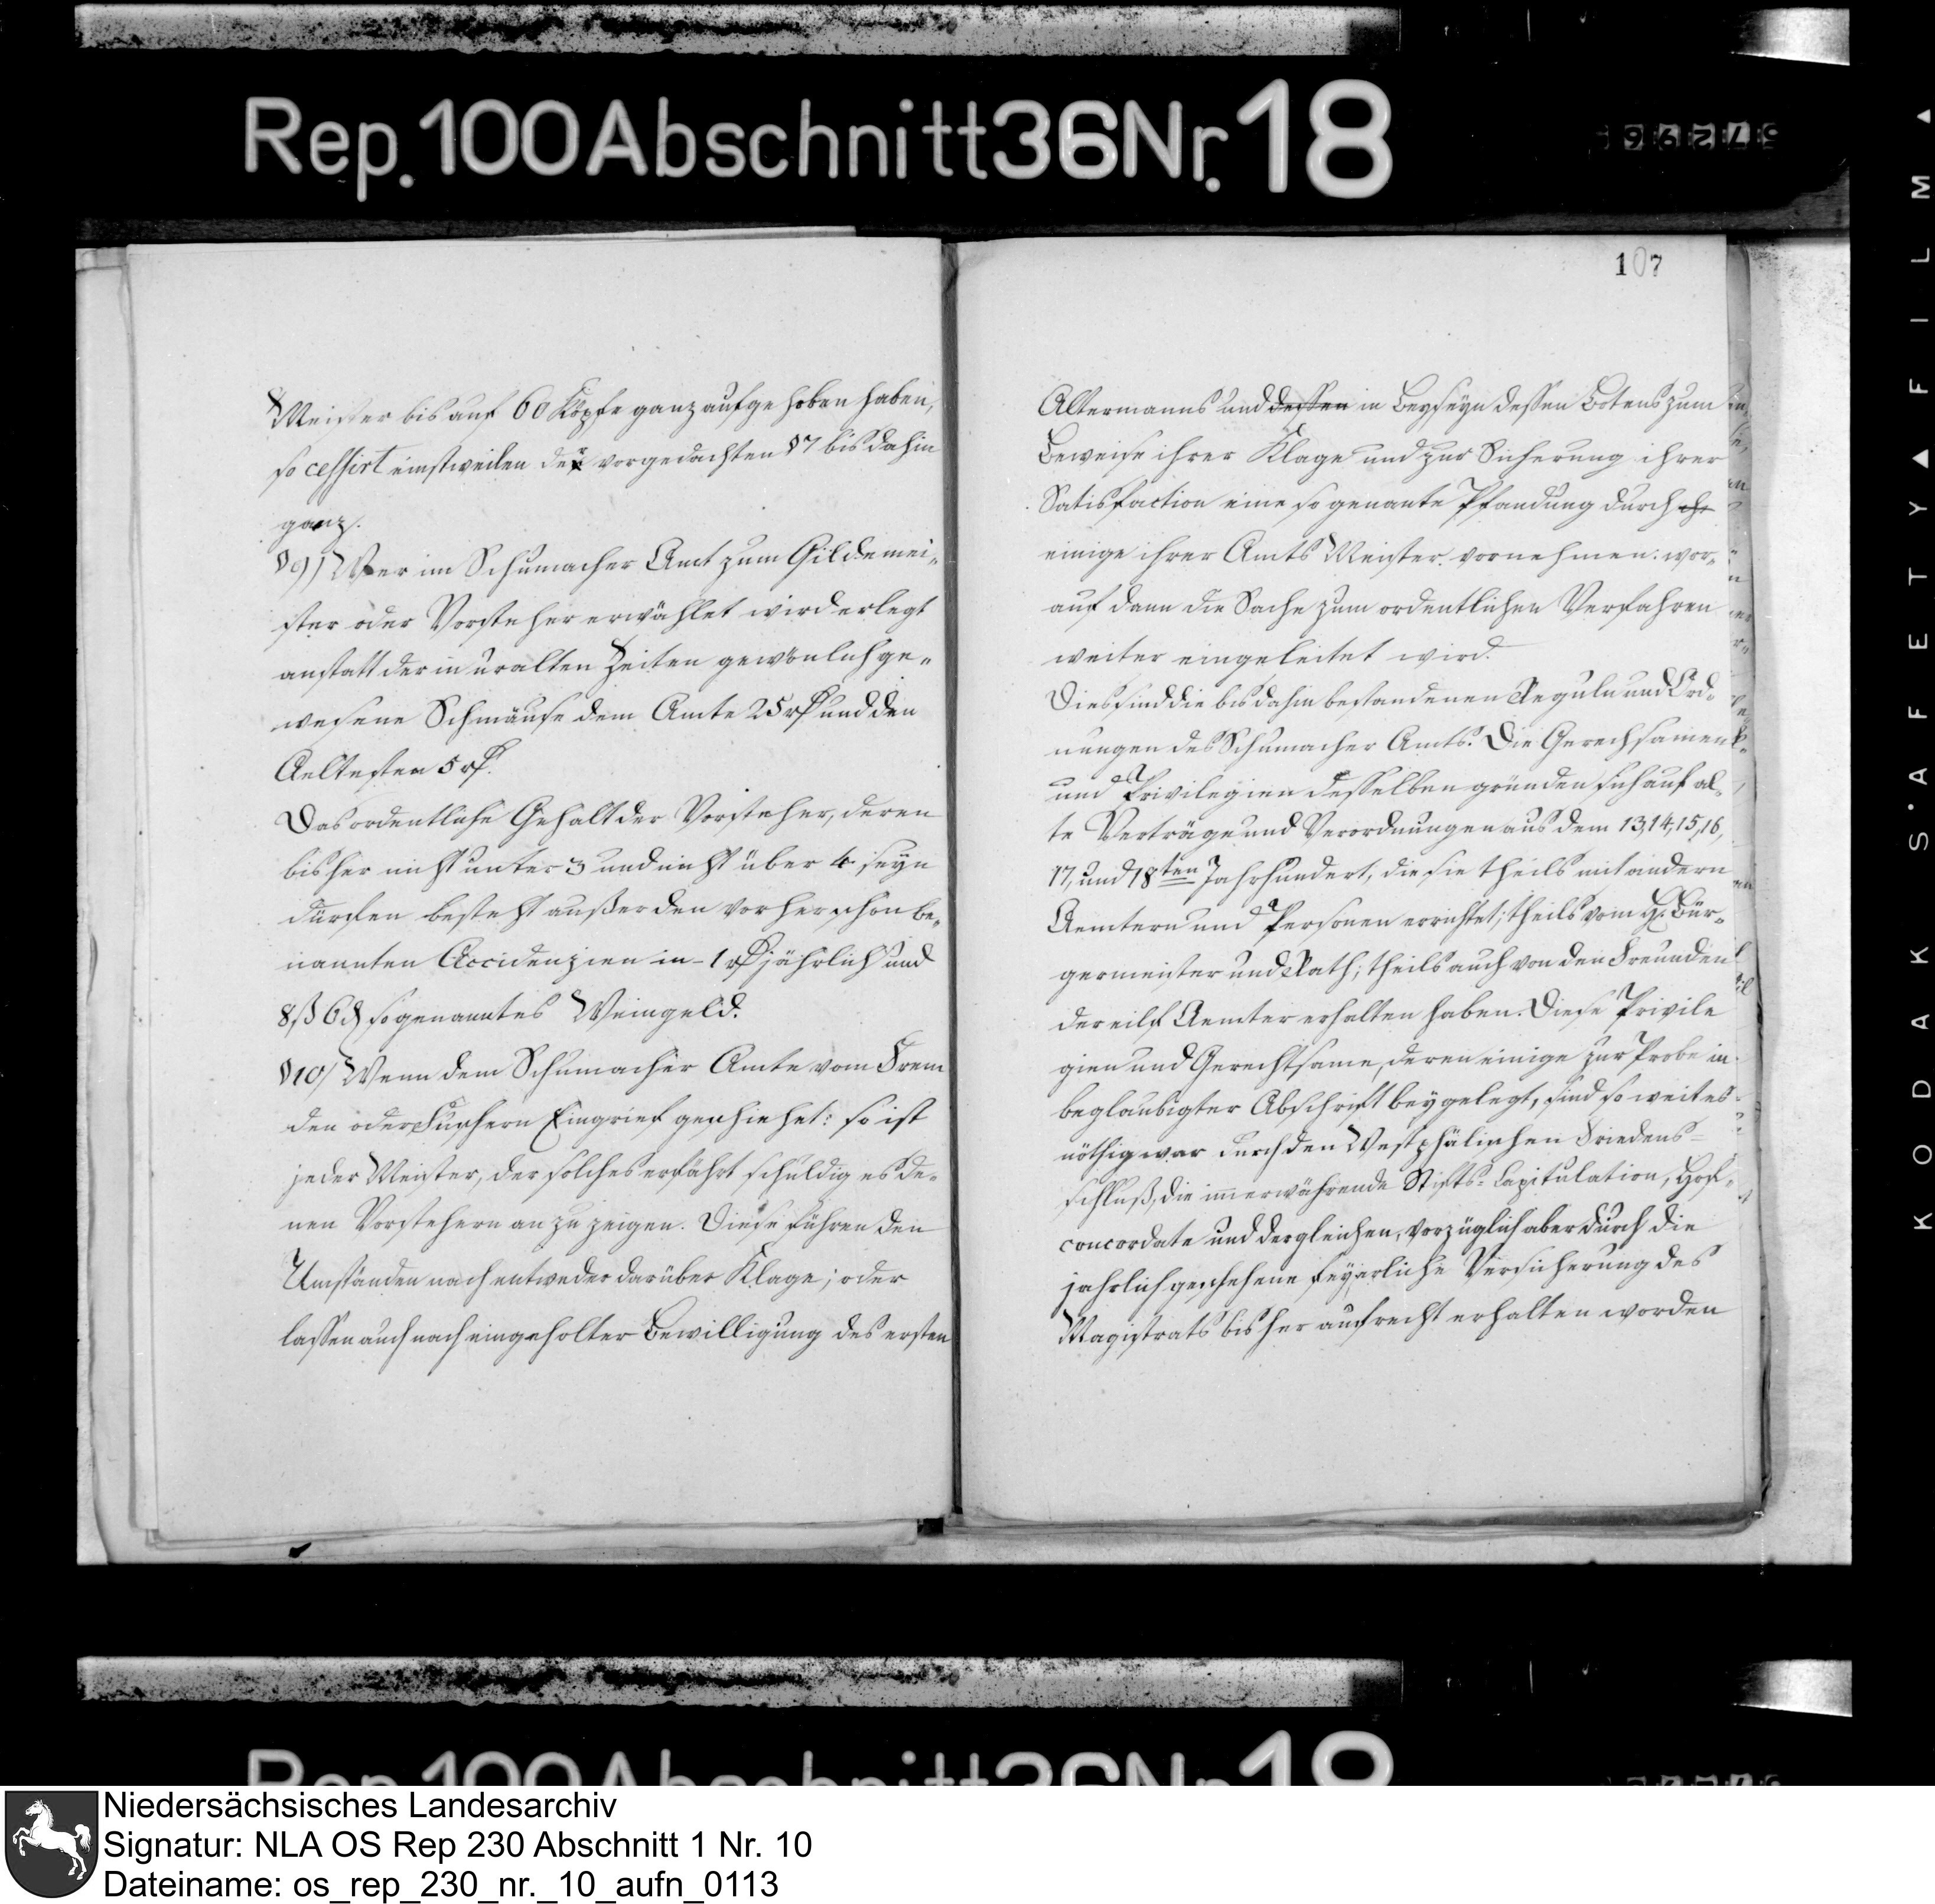 Rep. 100 Abschnitt 36 Nr. 18
Meister bis auf 60 Köpfe ganz aufgehoben haben,
so cessirt einstweilen der vorgedachten § 7 bis dahin
ganz.
§ 9) Wer im Schumacher Amt zum Gildemei-
ster oder Vorsteher erwählet wird erlegt
anstatt der in uralten Zeiten gewönlich ge-
wesene Schmäuse dem Amte 25 rt und den
Aeltesten 5 rt.
Das ordentliche Gehalt der Vorsteher, deren
bisher nicht unter 3 und nicht über 4 seyn
dürfen besteht außer den vorher schon be-
nannten Accidenzien in 1 rt jährlich und
8 ß 6 d sogenanntes Weingeld.
§ 10) Wenn dem Schumacher Amte vom Frem
den oder Fuschern Eingrief geschiehet: so ist
jeder Meister, der solches erfährt schuldig es de-
nen Vorstehern anzuzeigen. Diese führen den
Umständen nach entweder darüber Klage; oder
lassen auch nach eingeholter Bewilligung des ersten
107
Altermanns und dessen in Beyseyn dessen Botens zum
Beweise ihrer Klage und zur Sicherung ihrer
Satisfaction eine so genante Pfandung durch
einige ihrer Amts Meister vornehmen. wor-
auf dann die Sache zum ordentlichen Verfahren
weiter eingeleitet wird.
Dies sind die bis dahin bestandenen Reguln und Ord-
nungen des Schumacher Amts. Die Gerechsamen
und Privilegien desselben gründen sich auf al-
te Verträge und Verordnungen aus dem 13, 14, 15, 16,
17, und 18ten Jahrhundert, die sie theils mit andern
Aemtern und Personen errichtet; theils vom H. Bür-
germeister und Rath; theils auch von den Freunden
der eilf Aemter erhalten haben. Diese Privile
gien und Gerechtsame, deren einige zur Probe in
beglaubigter Abschrift beygelegt, sind so weit es
nöthig war durch den Westphälischen Friedens-
schluß, die immerwährende Stifts-Capitulation, Hof-
concordate und dergleichen, vorzüglich aber durch die
jahrlich geschehene feyerliche Versicherung des
Magistrats bisher aufrecht erhalten worden
KODAK SAFETY FILM
Niedersächsisches Landesarchiv
Signatur: NLA OS Rep 230 Abschnitt 1 Nr. 10
Dateiname: os_rep_230_nr._10_aufn_0113